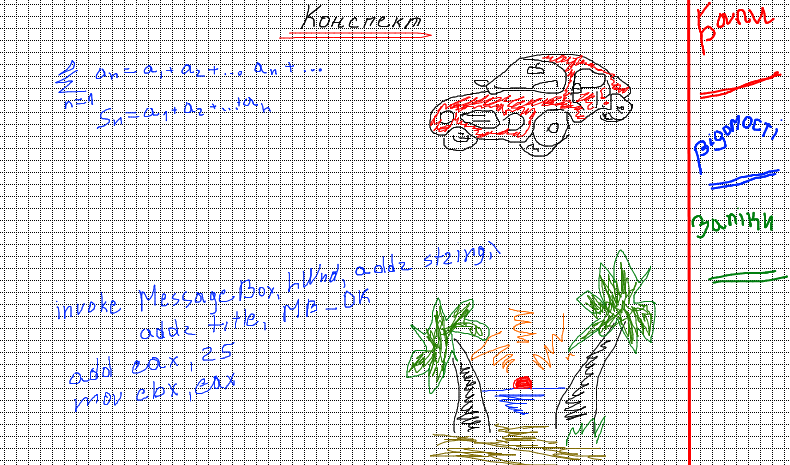 Конспект
∑ aₙ = a₁ + a₂ + ... aₙ + ...
n=1
Sₙ = a₁ + a₂ + ... + aₙ
invoke MessageBox, hWnd, addr string, \
addr title, MB_OK
add eax, 25
mov ebx, eax
Бали
Відомості
Заліки